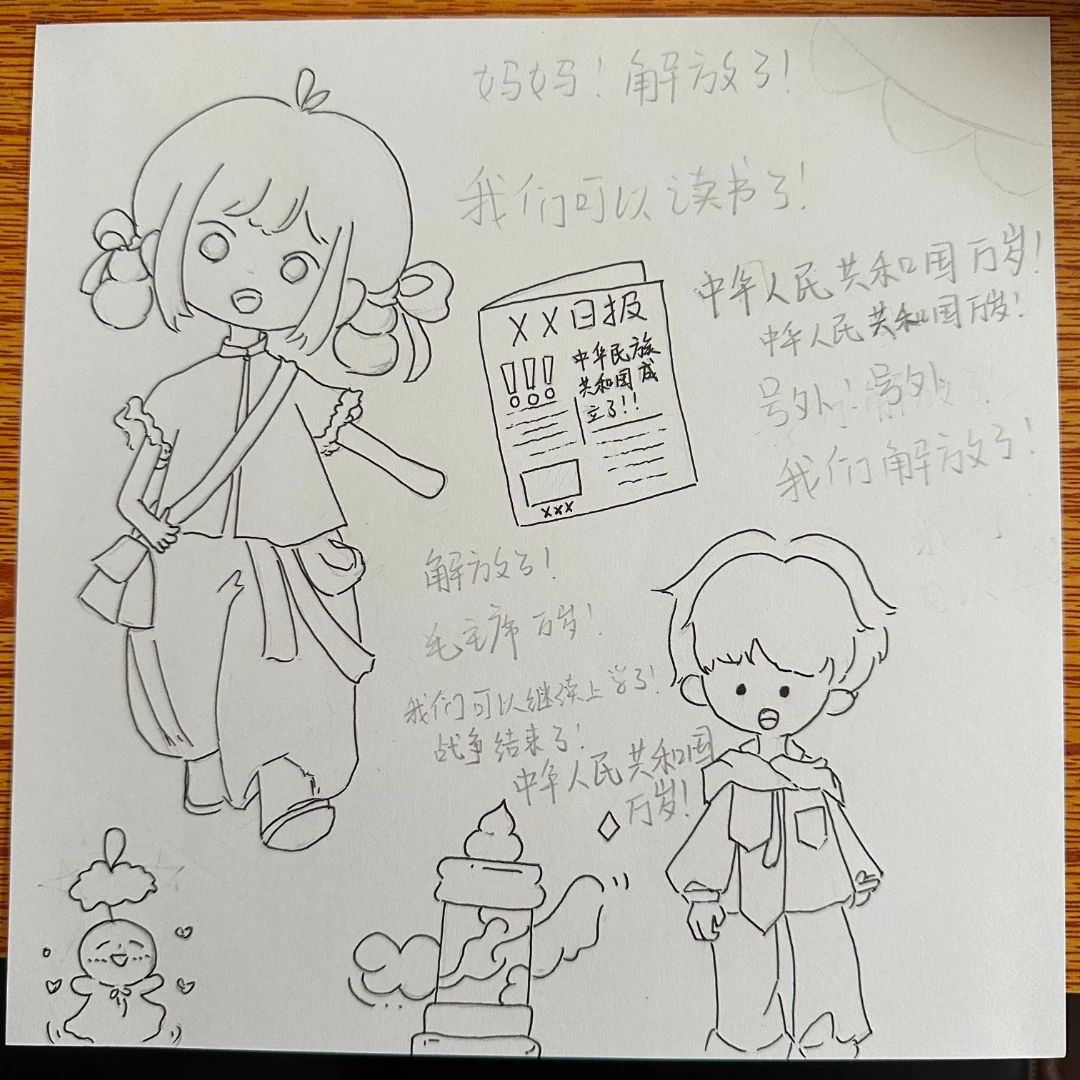 妈妈！解放了！
我们可以读书了！
中华人民共和国万岁！
中华人民共和国万岁！
号外！号外！
我们解放了！
XX日报
！！！
中华民族
共和国成
立了！！
xxx
解放了！
毛主席万岁！
我们可以继续上学了！
战争结束了！
中华人民共和国
万岁！